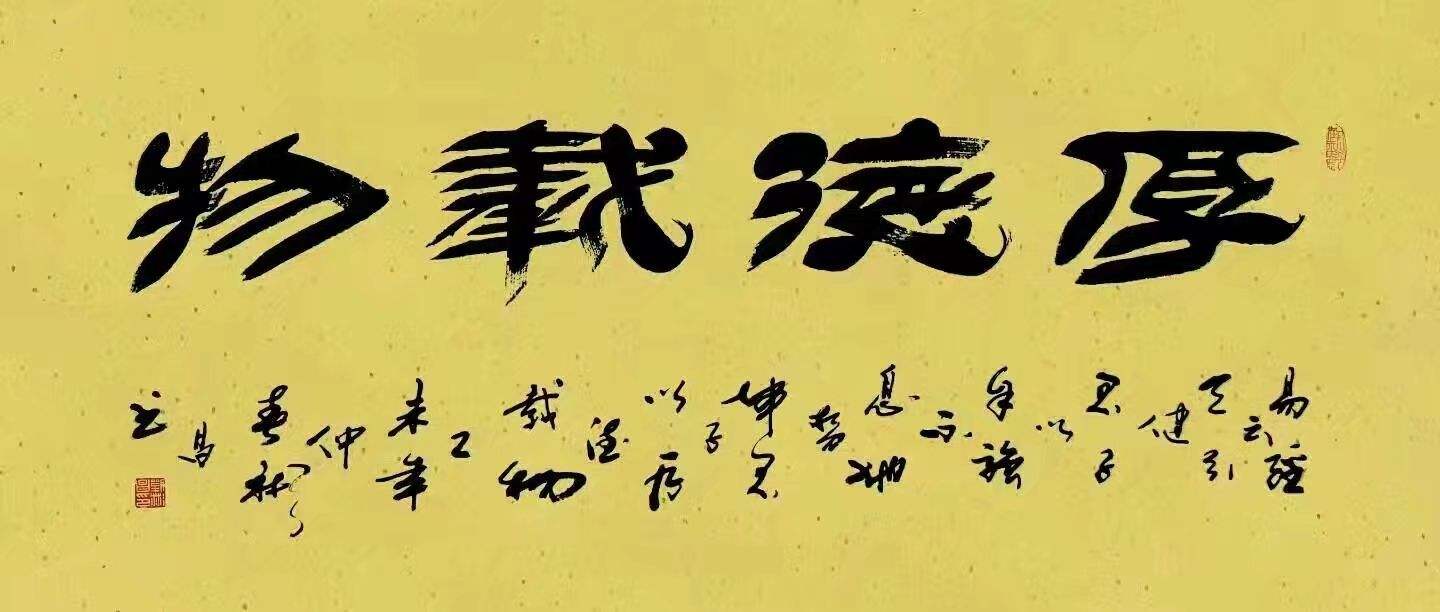 厚德載物
易經
云
天行
健
君子
以
自強
不
息地
勢
坤君
子
以厚
德
載物
乙
未年
仲
春
昌
书